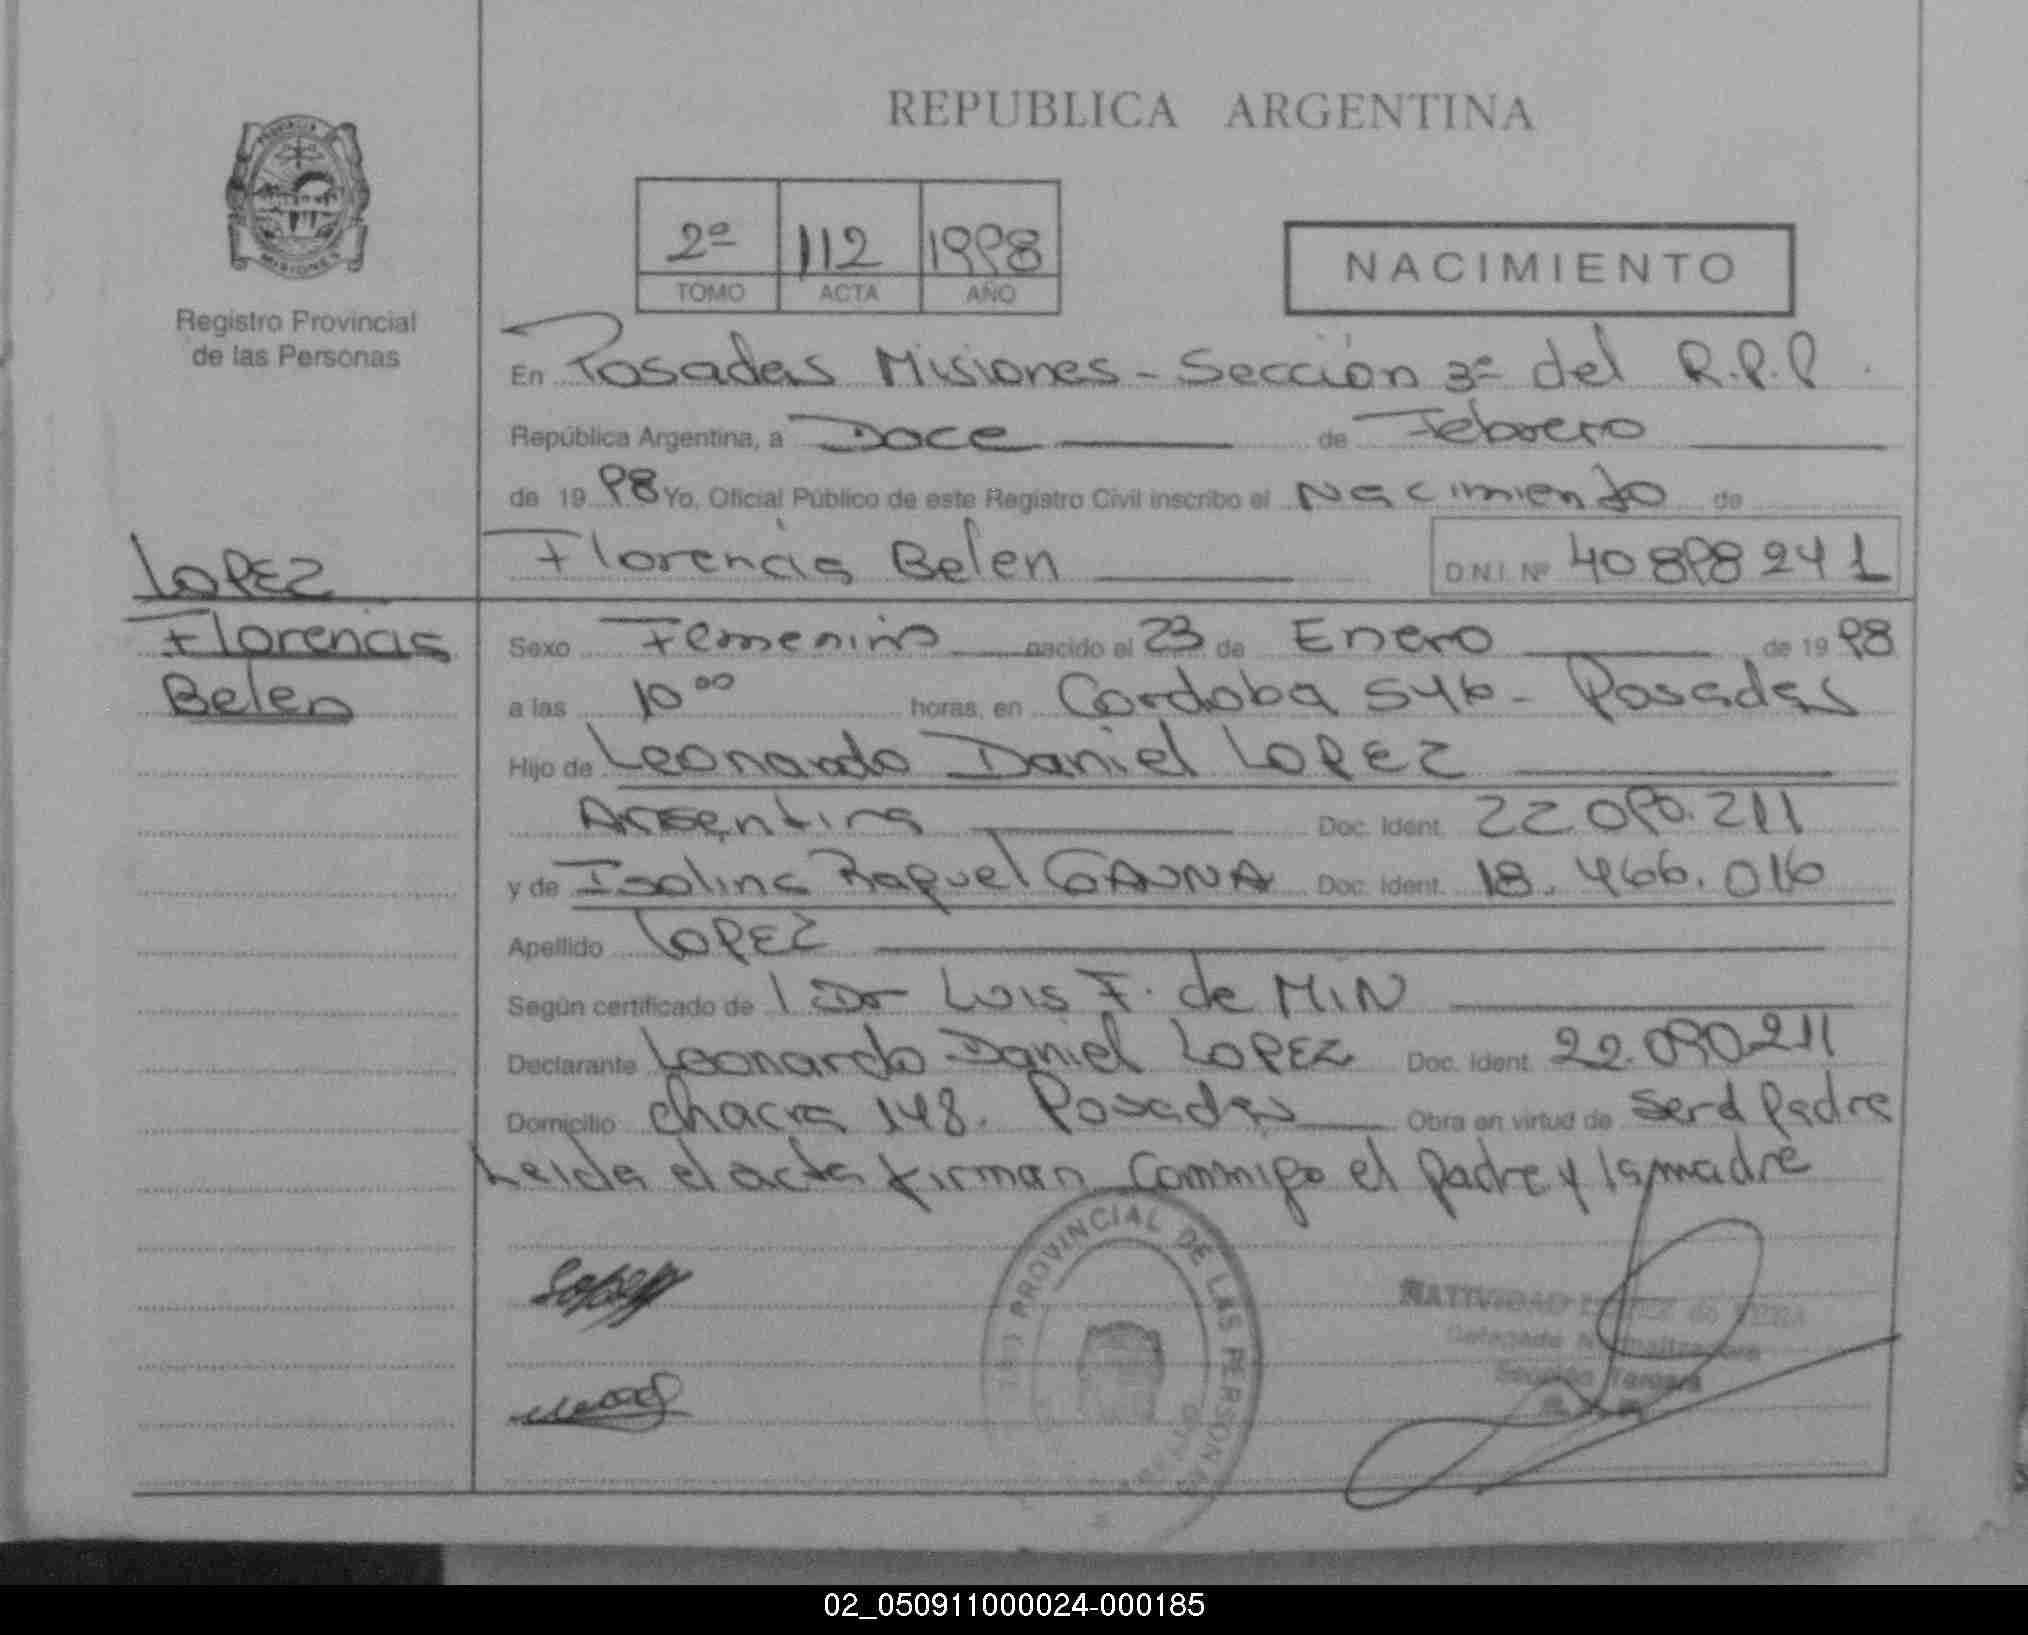 REPUBLICA ARGENTINA
MISIONES
Registro Provincial
de las Personas
2º 112 1998
TOMO ACTA AÑO
NACIMIENTO
En Posadas Misiones - Sección 3º del R.P.P.
República Argentina, a Doce de Febrero
de 19 98 Yo, Oficial Público de este Registro Civil inscribo el Nacimiento de
Florencia Belen D.N.I. Nº 40 898 241
LOPEZ
Florencia
Belen
Sexo Femenino nacido el 23 de Enero de 19 98
a las 10 00 horas, en Cordoba 546 - Posadas
Hijo de Leonardo Daniel LOPEZ
Argentina Doc. Ident. 22.090.211
y de Isolina Raquel GAUNA Doc. Ident. 18.466.016
Apellido LOPEZ
Según certificado de Dr Luis F. de MIN
Declarante Leonardo Daniel LOPEZ Doc. Ident. 22.090.211
Domicilio chacra 148. Posadas Obra en virtud de ser el padre
Leida el acta firman conmigo el padre y la madre
PROVINCIAL DE LAS PERSONAS
NATIVIDAD de
Delegada Normalizadora
Sección Tercera
02_050911000024-000185